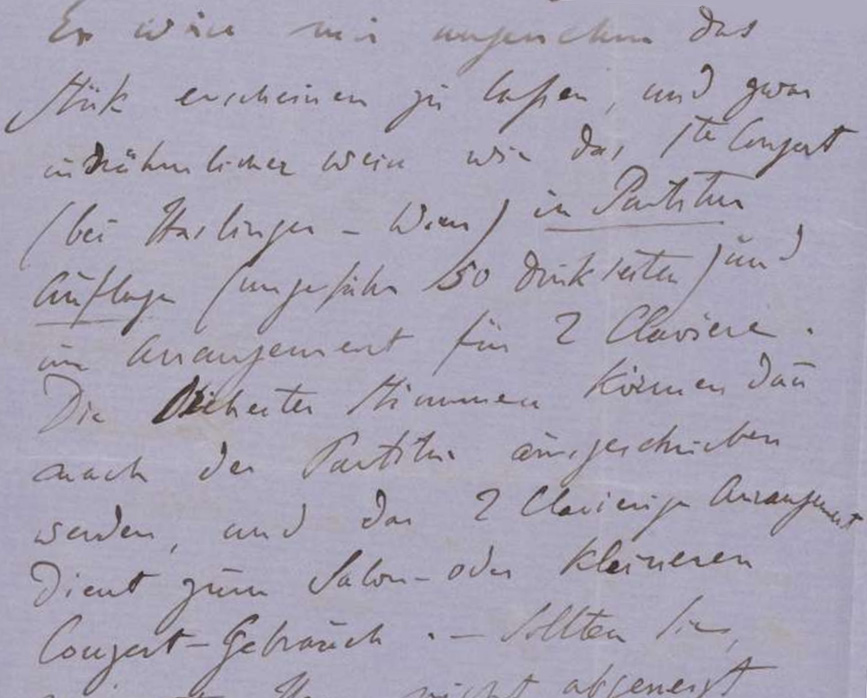 Es wäre mir angenehm das
Stük erscheinen zu laßen, und zwar
in ähnlicher Weise wie das 1te Conzert
(bei Haslinger – Wien) in Partitur
Auflage (ungefähr 150 Drukseiten) und
im Arrangement für 2 Claviere.
Die Orchester Stimmen können dañ
nach der Partitur ausgeschrieben
werden, und das 2 Clavierige Arrangement
dient zum Salon- oder kleineren
Conzert-Gebrauch. – Sollten Sie,
nicht abgeneigt